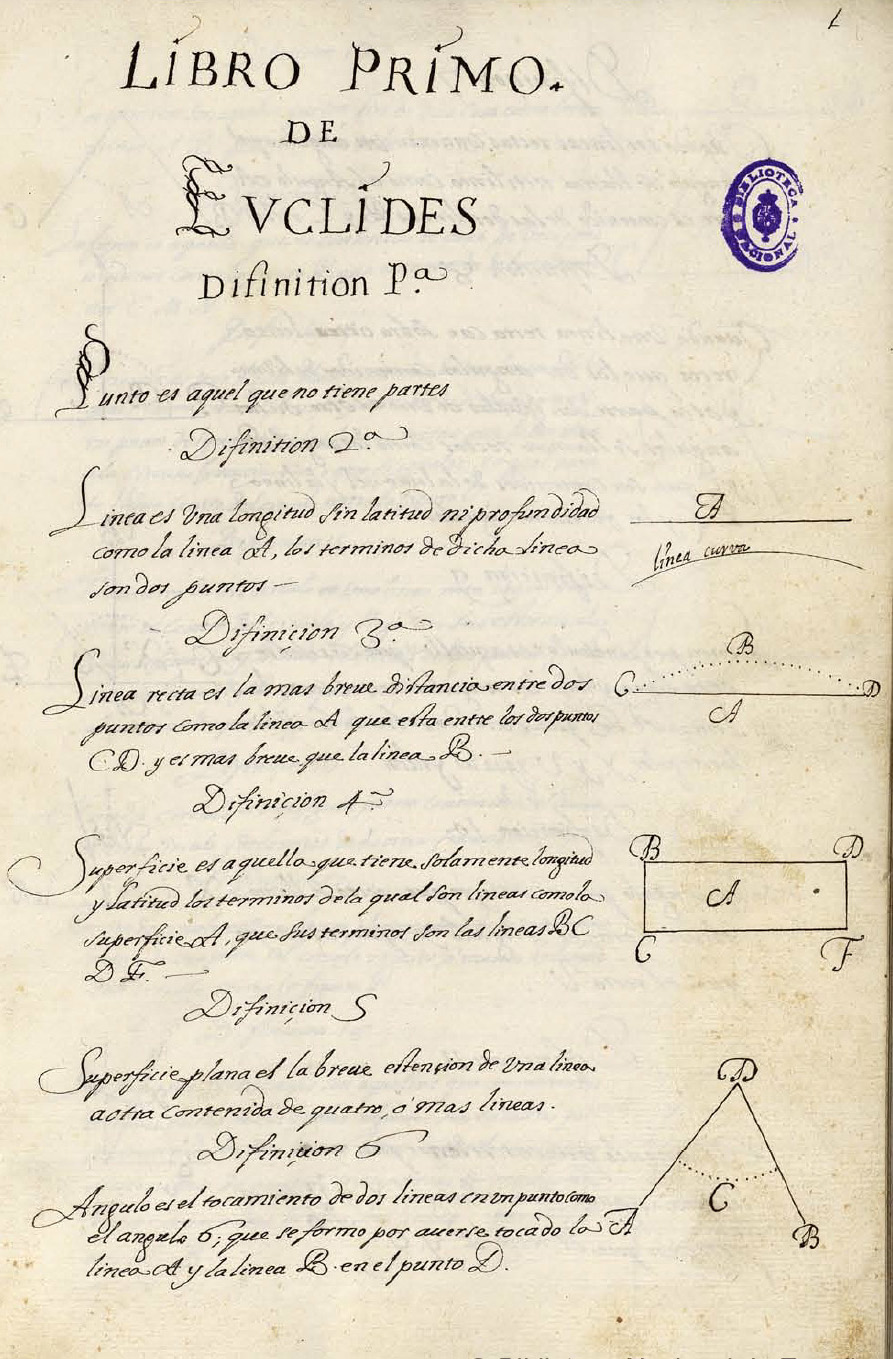 1
LIBRO PRIMO.
DE
EVCLIDES
Difinition P.ª
BIBLIOTECA NACIONAL
Punto es aquel que no tiene partes
Difinition 2.ª
Linea es Vna longitud sin latitud ni profundidad
como la linea A, los terminos de dicha linea
son dos puntos —
A
linea curva
Difiniçion 3.ª
Linea recta es la mas breue distancia entre dos
puntos como la linea A que esta entre los dos puntos
C D. y es mas breue que la linea B. —
B
C D
A
Difiniçion 4ª
Superficie es aquella que tiene solamente longitud
y latitud los terminos de la qual son lineas como la
superficie A, que sus terminos son las lineas B C
D F. —
B D
A
C F
Difiniçion 5
Superficie plana es la breue estençion de Vna linea
a otra contenida de quatro, o mas lineas.
Difiniçion 6
Angulo es el tocamiento de dos lineas en vn punto como
el angulo 6; que se formo por auerse tocado la
linea A y la linea B. en el punto D.
D
C
A B